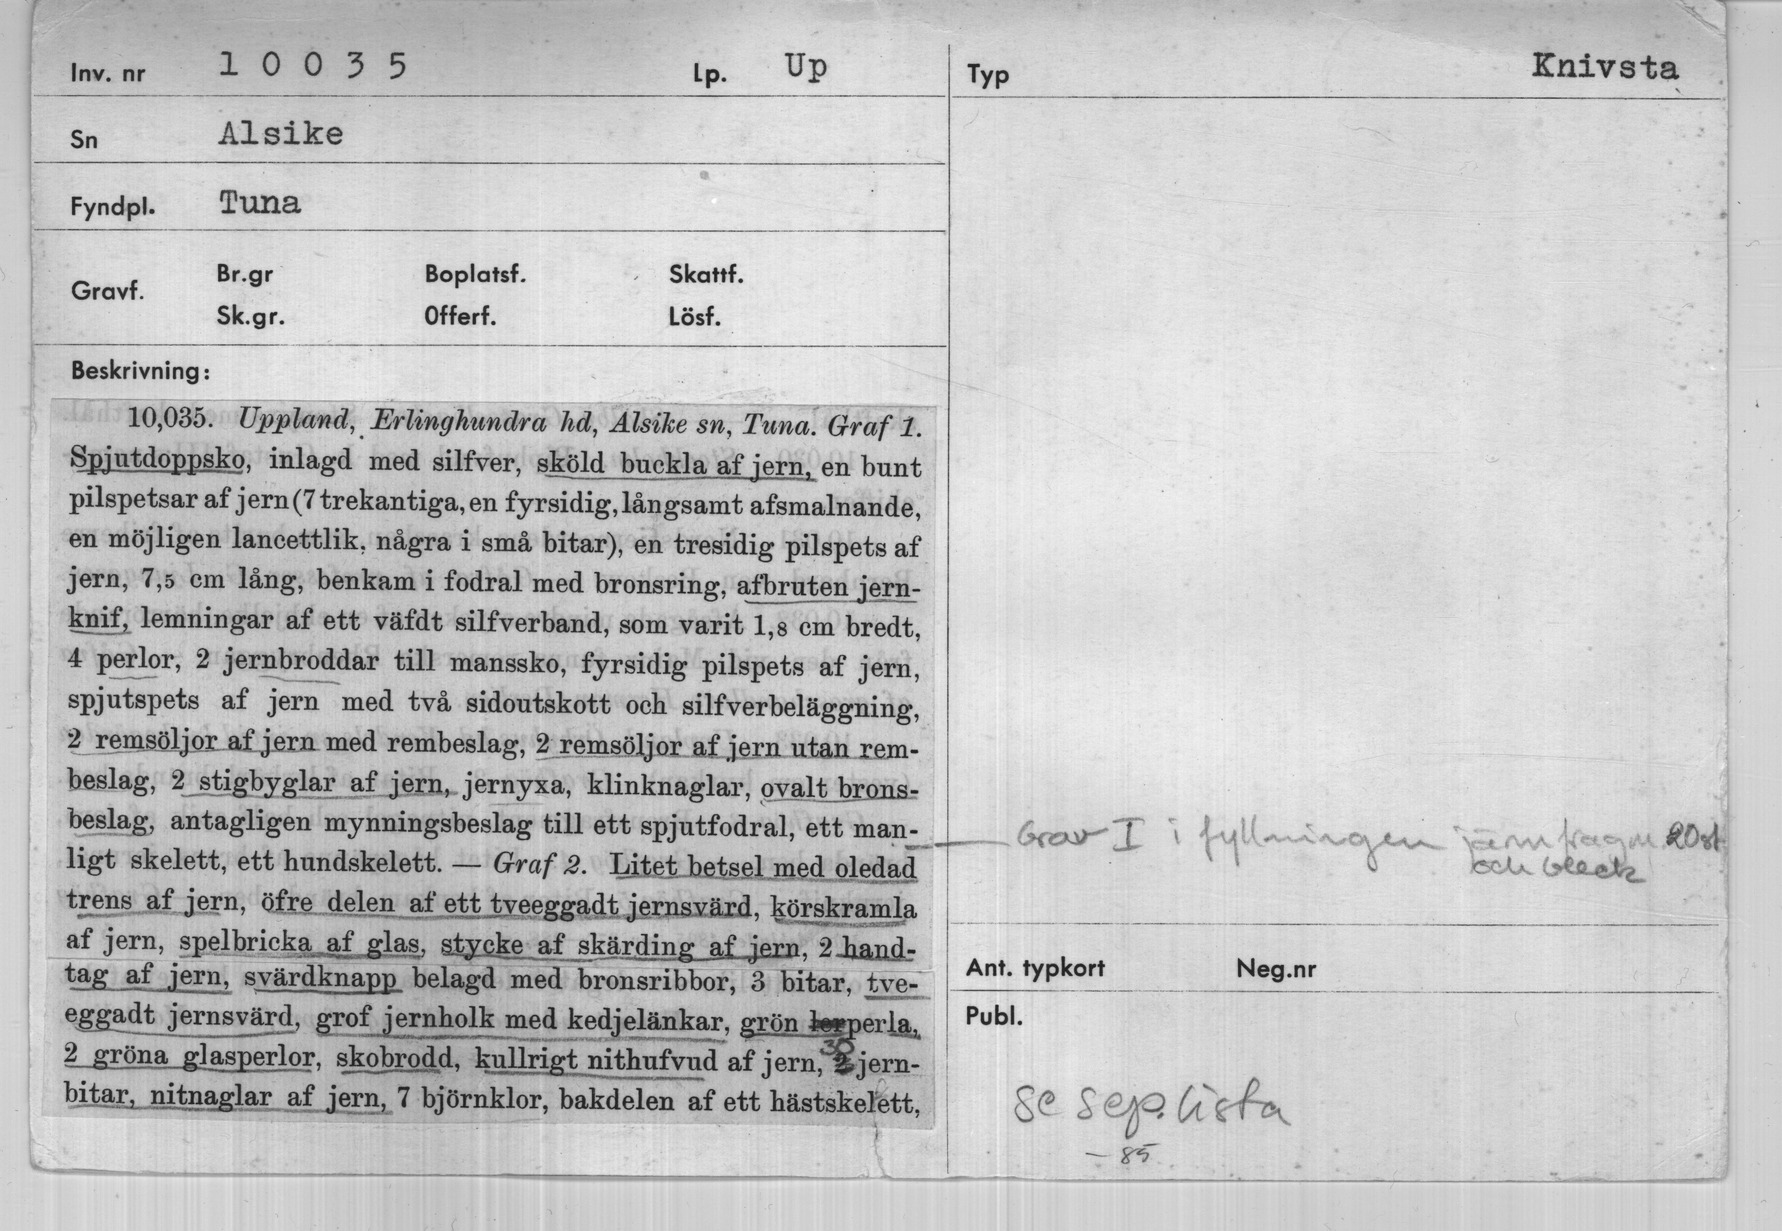 Inv. nr 10035 Lp. Up
Sn Alsike
Fyndpl. Tuna
Gravf. Br.gr Boplatsf. Skattf.
Sk.gr. Offerf. Lösf.
Beskrivning:
10,035. Uppland, Erlinghundra hd, Alsike sn, Tuna. Graf 1.
Spjutdoppsko, inlagd med silfver, sköld buckla af jern, en bunt
pilspetsar af jern (7 trekantiga, en fyrsidig, långsamt afsmalnande,
en möjligen lancettlik, några i små bitar), en tresidig pilspets af
jern, 7,5 cm lång, benkam i fodral med bronsring, afbruten jern-
knif, lemningar af ett väfdt silfverband, som varit 1,8 cm bredt,
4 perlor, 2 jernbroddar till manssko, fyrsidig pilspets af jern,
spjutspets af jern med två sidoutskott och silfverbeläggning,
2 remsöljor af jern med rembeslag, 2 remsöljor af jern utan rem-
beslag, 2 stigbyglar af jern, jernyxa, klinknaglar, ovalt brons-
beslag, antagligen mynningsbeslag till ett spjutfodral, ett man-
ligt skelett, ett hundskelett. — Graf 2. Litet betsel med oledad
trens af jern, öfre delen af ett tveeggadt jernsvärd, körskramla
af jern, spelbricka af glas, stycke af skärding af jern, 2 hand-
tag af jern, svärdknapp belagd med bronsribbor, 3 bitar, tve-
eggadt jernsvärd, grof jernholk med kedjelänkar, grön lerperla,
2 gröna glasperlor, skobrodd, kullrigt nithufvud af jern, 30 2 jern-
bitar, nitnaglar af jern, 7 björnklor, bakdelen af ett hästskelett,
Typ Knivsta
Grav I i fyllningen järnfragm. 20 st
och bleck
Ant. typkort Neg.nr
Publ.
se sep. lista
—85